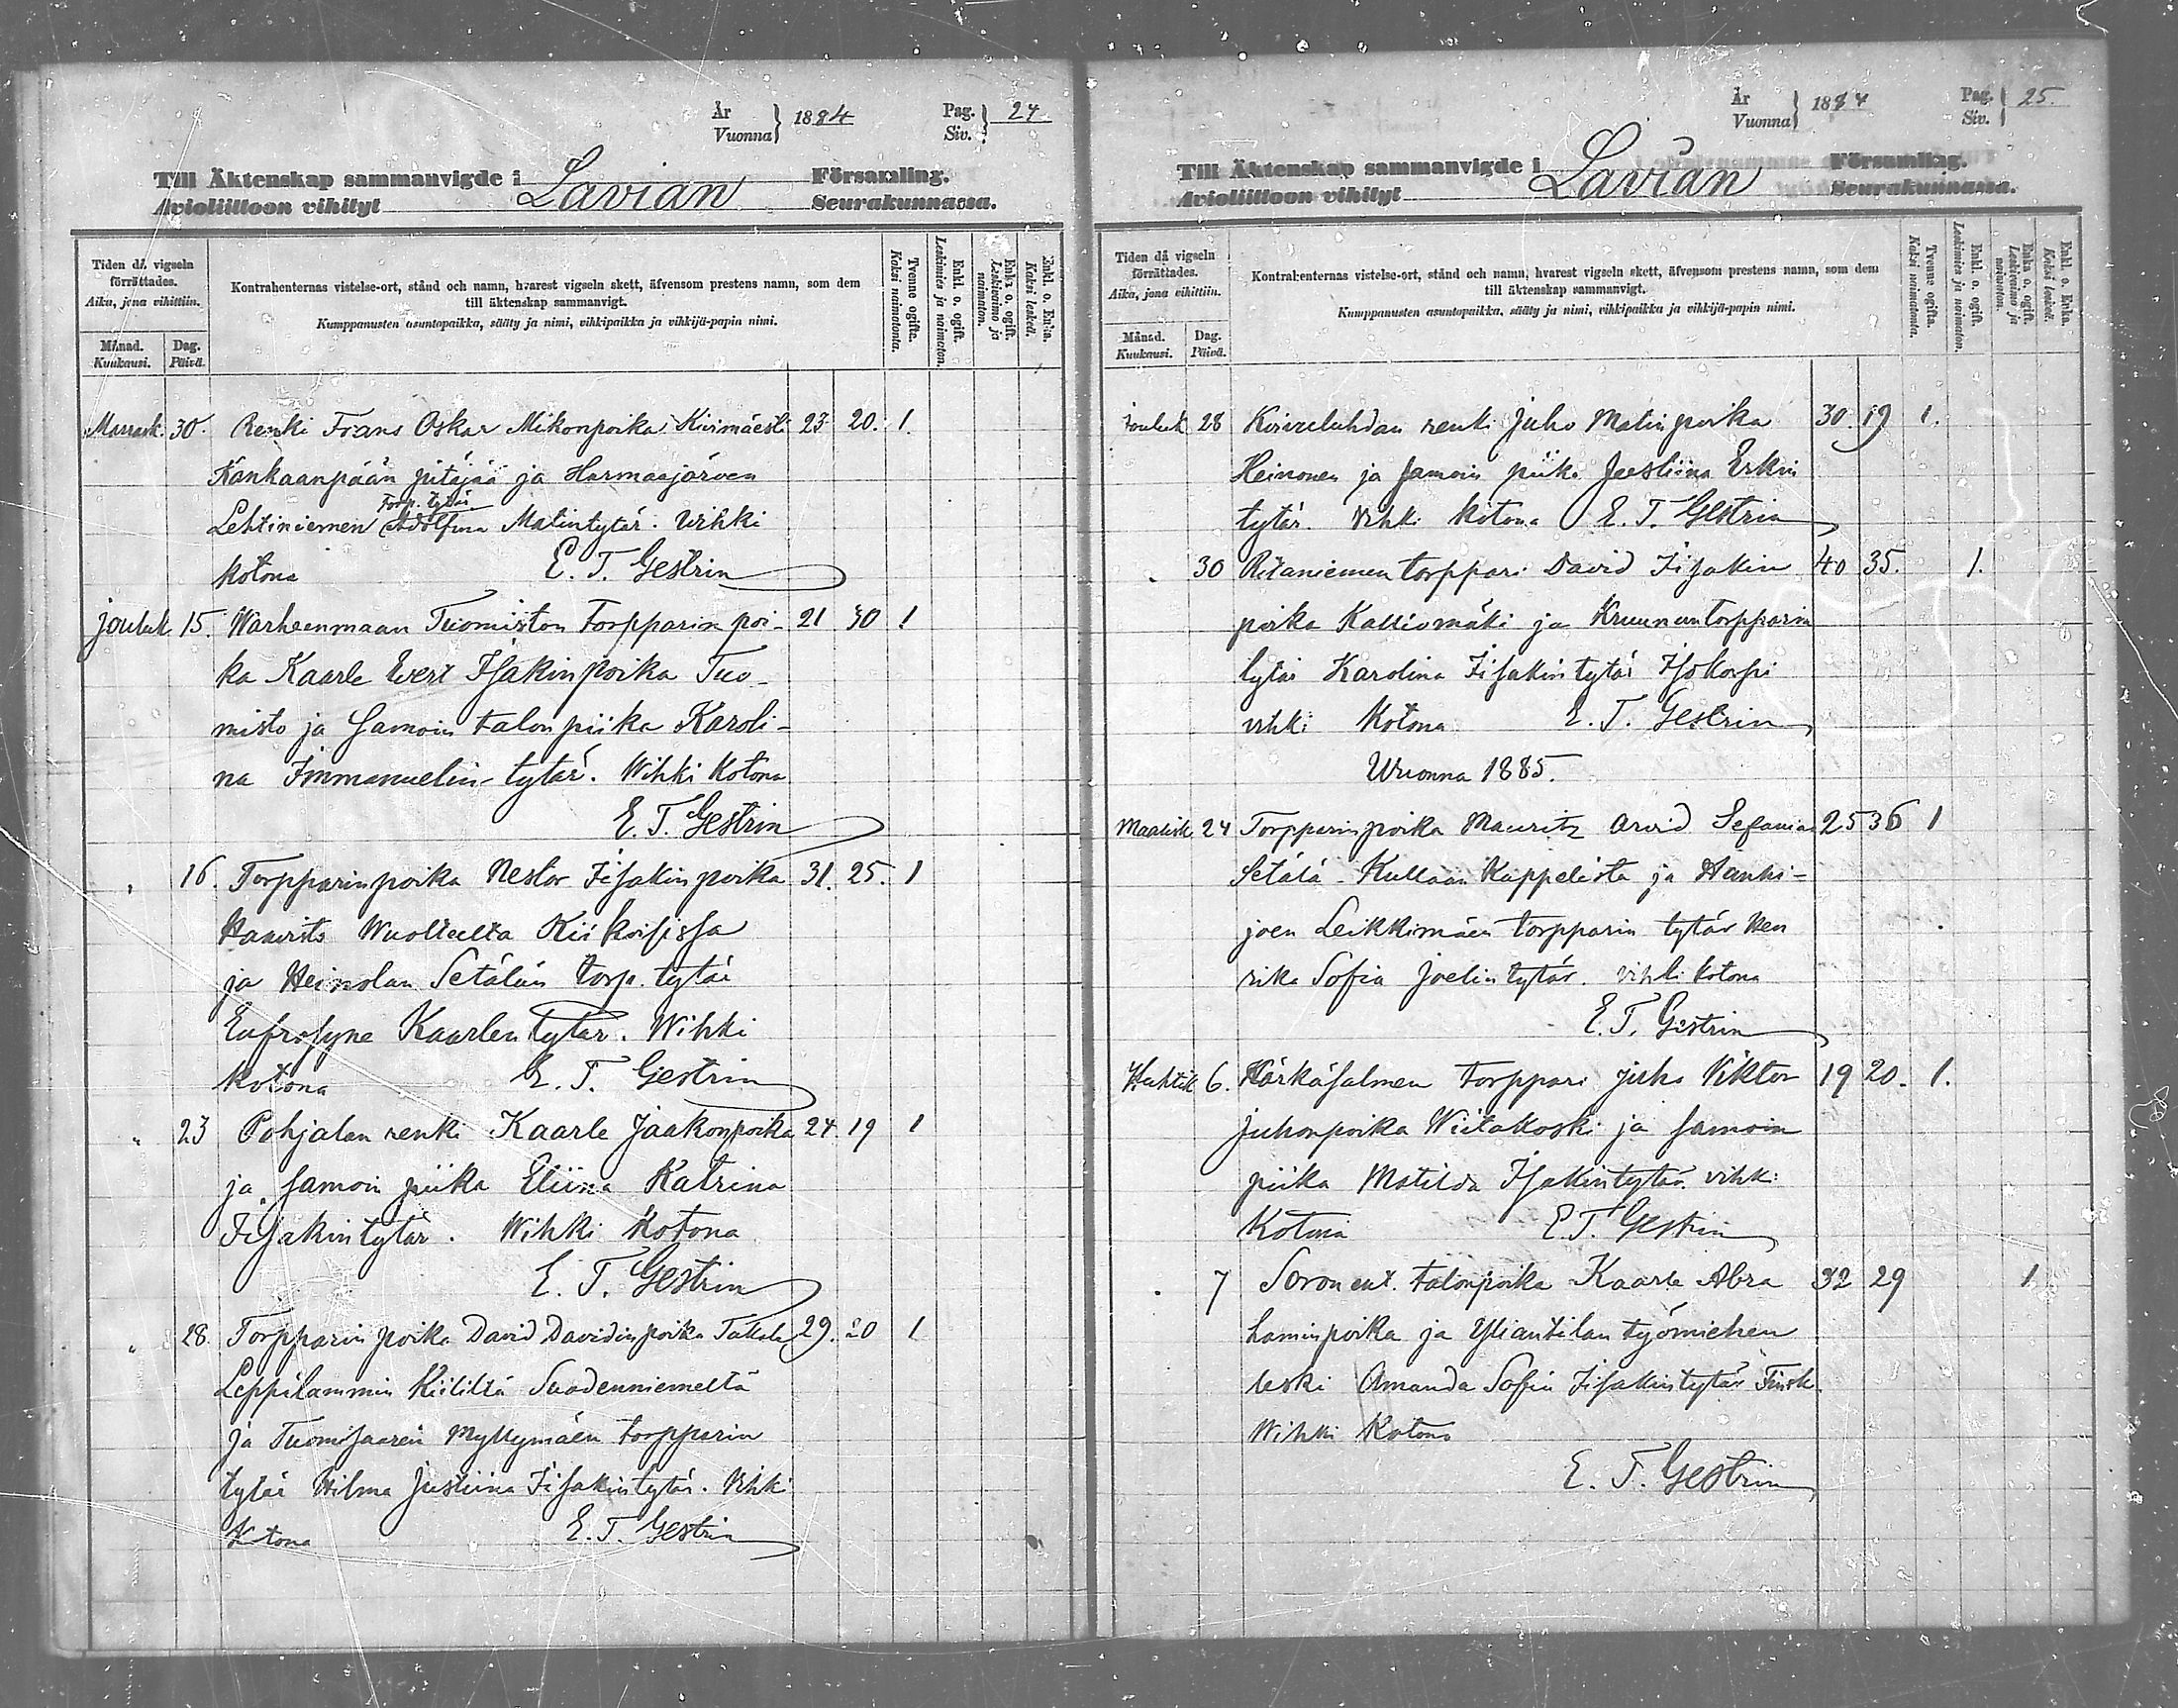 År
Vuonna } 1884 Pag.
Siv. } 24
Till Äktenskap sammanvigde i Lavian Församling.
Avioliittoon vihityt Seurakunnassa.
Tiden då vigseln förrättades.
Aika, jona vihittiin.
Månad. Kuukausi.
Dag. Päivä.
Kontrahenternas vistelse-ort, stånd och namn, hvarest vigseln skett, äfvensom prestens namn, som dem
till äktenskap sammanvigt.
Kumppanusten asuntopaikka, sääty ja nimi, vihkipaikka ja vihkijä-papin nimi.
Tvenne ogifta. Kaksi naimatonta.
Enkl. o. ogift. Leskimies ja naimaton.
Enka o. ogift. Leskivaimo ja naimaton.
Enkl. o. Enka. Kaksi leskeä.
Marrask. 30. Renki Frans Oskar Mikonpoika Kivimäesti 23 20. 1.
Kankaanpään pitäjää ja Harmaajärven
Torp. tytär
Lehtiniemen Adolfina Matintytär. Wihki
kotona E. T. Gestrin
Jouluk. 15. Warheenmaan Tuomiston Torpparin poi- 21 30 1
ka Kaarle Evert Isakinpoika Tuo-
misto ja samoin talon piika Karoli-
na Immanuelin-tytär. Wihki kotona
E. T. Gestrin
" 16. Torpparinpoika Nestor Iisakinpoika 31. 25. 1
Kiikoisissa
ja Heinolan Setälän torp. tytär
Eufrosyne Kaarlentytär. Wihki
kotona E. T. Gestrin
" 23 Pohjalan renki Kaarle Jaakonpoika 24. 19 1
ja samoin piika Eliina Katrina
Iisakintytär. Wihki kotona
E. T. Gestrin
" 28. Torpparin poika David Davidinpoika 29. 20 1
Leppilammin Suodenniemeltä
ja Tuomisaaren Myllymäen torpparin
tytär Hilma Justiina Iisakintytär. Vihki
kotona E. T. Gestrin
År
Vuonna } 1884 Pag.
Siv. } 25.
Till Äktenskap sammanvigde i Lavian Församling.
Avioliittoon vihityt Seurakunnassa.
Tiden då vigseln förrättades.
Aika, jona vihittiin.
Månad. Kuukausi.
Dag. Päivä.
Kontrahenternas vistelse-ort, stånd och namn, hvarest vigseln skett, äfvensom prestens namn, som dem
till äktenskap sammanvigt.
Kumppanusten asuntopaikka, sääty ja nimi, vihkipaikka ja vihkijä-papin nimi.
Tvenne ogifta. Kaksi naimatonta.
Enkl. o. ogift. Leskimies ja naimaton.
Enka o. ogift. Leskivaimo ja naimaton.
Enkl. o. Enka. Kaksi leskeä.
Jouluk 28 renki Juho Matinpoika 30. 19 1.
Heinonen ja samoin piika Erkin
tytär. Vihki kotona E. T. Gestrin
" 30 Ritaniemen torppari David Iisakin 40 35. 1.
poika Kalliomäki ja Kruununtorpparin
tytär Karolina Iisakintytär Isokorpi
vihki kotona E. T. Gestrin
Wuonna 1885.
Maalisk 24 Torpparinpoika Mauritz Arvid Sefanias 25 36 1
Setälä Kullaan Kappelista ja
joen Leikkimäen torpparin tytär Hen
rika Sofia Joelintytär. vihki kotona
E. T. Gestrin
Huhtik 6. Kärkäsalmen torppari Juho Viktor 19 20. 1.
Juhonpoika Wiitakoski ja samoin
piika Matilda Isakintytär. vihki
Kotona E. T. Gestrin
" 7 talonpoika Kaarle Abra 32 29 1
haminpoika ja Yliantilan työmiehen
leski Amanda Sofia Iisakintytär
Wihki Kotona
E. T. Gestrin